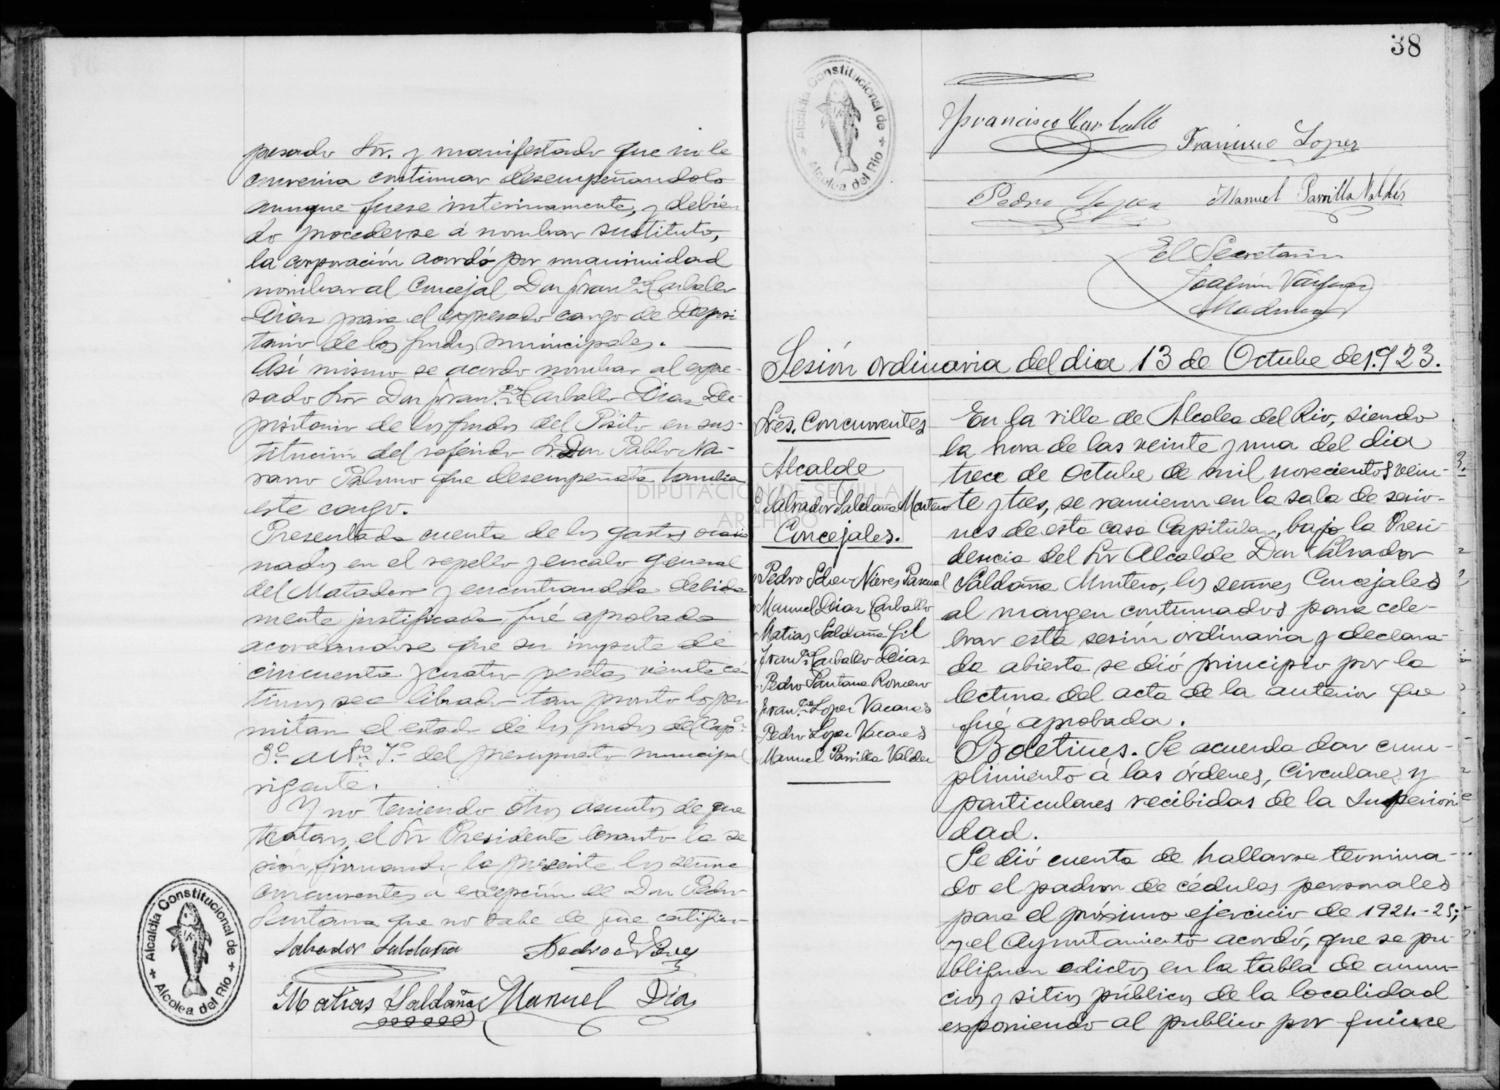 presado Sor. y manifestado que no le
convenia continuar desempeñandolo
aunque fuese interinamente, y debien-
do procederse á nombrar sustituto,
la corporación acordó por unanimidad
nombrar al Concejal Don Fran.co Carballo
Dias para el expresado cargo de Deposi
tario de los fondos municipales.
Así mismo se acordo nombrar al expre-
sado Sor Don Fran.co Carballo Dias De-
positario de los fondos del Pósito en sus-
titucion del referido Sr Don Pablo Na-
varro Palomo que desempeñaba tambien
este cargo.
Presentada cuenta de los gastos ocasio
nados en el repello y encalo general
del Matadero y encontrandola debida
mente justificada fué aprobada
acordandose que su importe de
cincuenta y cuatro pesetas veinte cé
timos sea librado tan pronto lo per
mitan el estado de los fondos del Capº
3º artº 7º del presupuesto municipal
vigente.
Y no teniendo otros asuntos de que
tratar, el Sr Presidente levanto la se
sion, firmando la presente los señores
concurrentes a excepción de Don Pedro
Santana que no sabe de que certifico-
Salvador Saldaña
Pedro S Nieves
Matias Saldaña
Manuel Dias
Alcaldia Constitucional de
Alcolea del Rio
38
Alcaldia Constitucional de
Alcolea del Rio
Francisco Carballo
Francisco Lopez
Pedro Lopez
Manuel Parrilla Valdés
El Secretario
Joaquín Vázquez
Sesión ordinaria del dia 13 de Octubre de 1.923.
Sres. Concurrentes
Alcalde
Salvador Saldaña Montero
Concejales.
Pedro Nieves Pascual
Manuel Dias Carballo
Matias Saldaña Gil
Fran.co Carballo Dias
Pedro Santana Romero
Fran.co Lopez Vacares
Pedro Lopez Vacares
Manuel Parrilla Valdes
En la villa de Alcolea del Rio, siendo
la hora de las veinte y una del dia
trece de Octubre de mil novecientos vein-
te y tres, se reunieron en la sala de sesio-
nes de esta casa Capitular, bajo la Presi-
dencia del Sr Alcalde Don Salvador
Saldaña Montero, los señores Concejales
al margen continuados para cele-
brar esta sesión ordinaria y declara-
da abierta se dió principio por la
lectura del acta de la anterior que
fué aprobada.
Boletines. Se acuerda dar cum-
plimiento á las órdenes, Circulares y
particulares recibidas de la Superiori
dad.
Se dió cuenta de hallarse termina-
do el padron de cédulas personales
para el próximo ejercicio de 1924-25;
y el Ayuntamiento acordó, que se pu-
bliquen edictos en la tabla de anun-
cios y sitios públicos de la localidad
exponiendo al publico por quince
DIPUTACIÓN DE SEVILLA
ARCHIVO